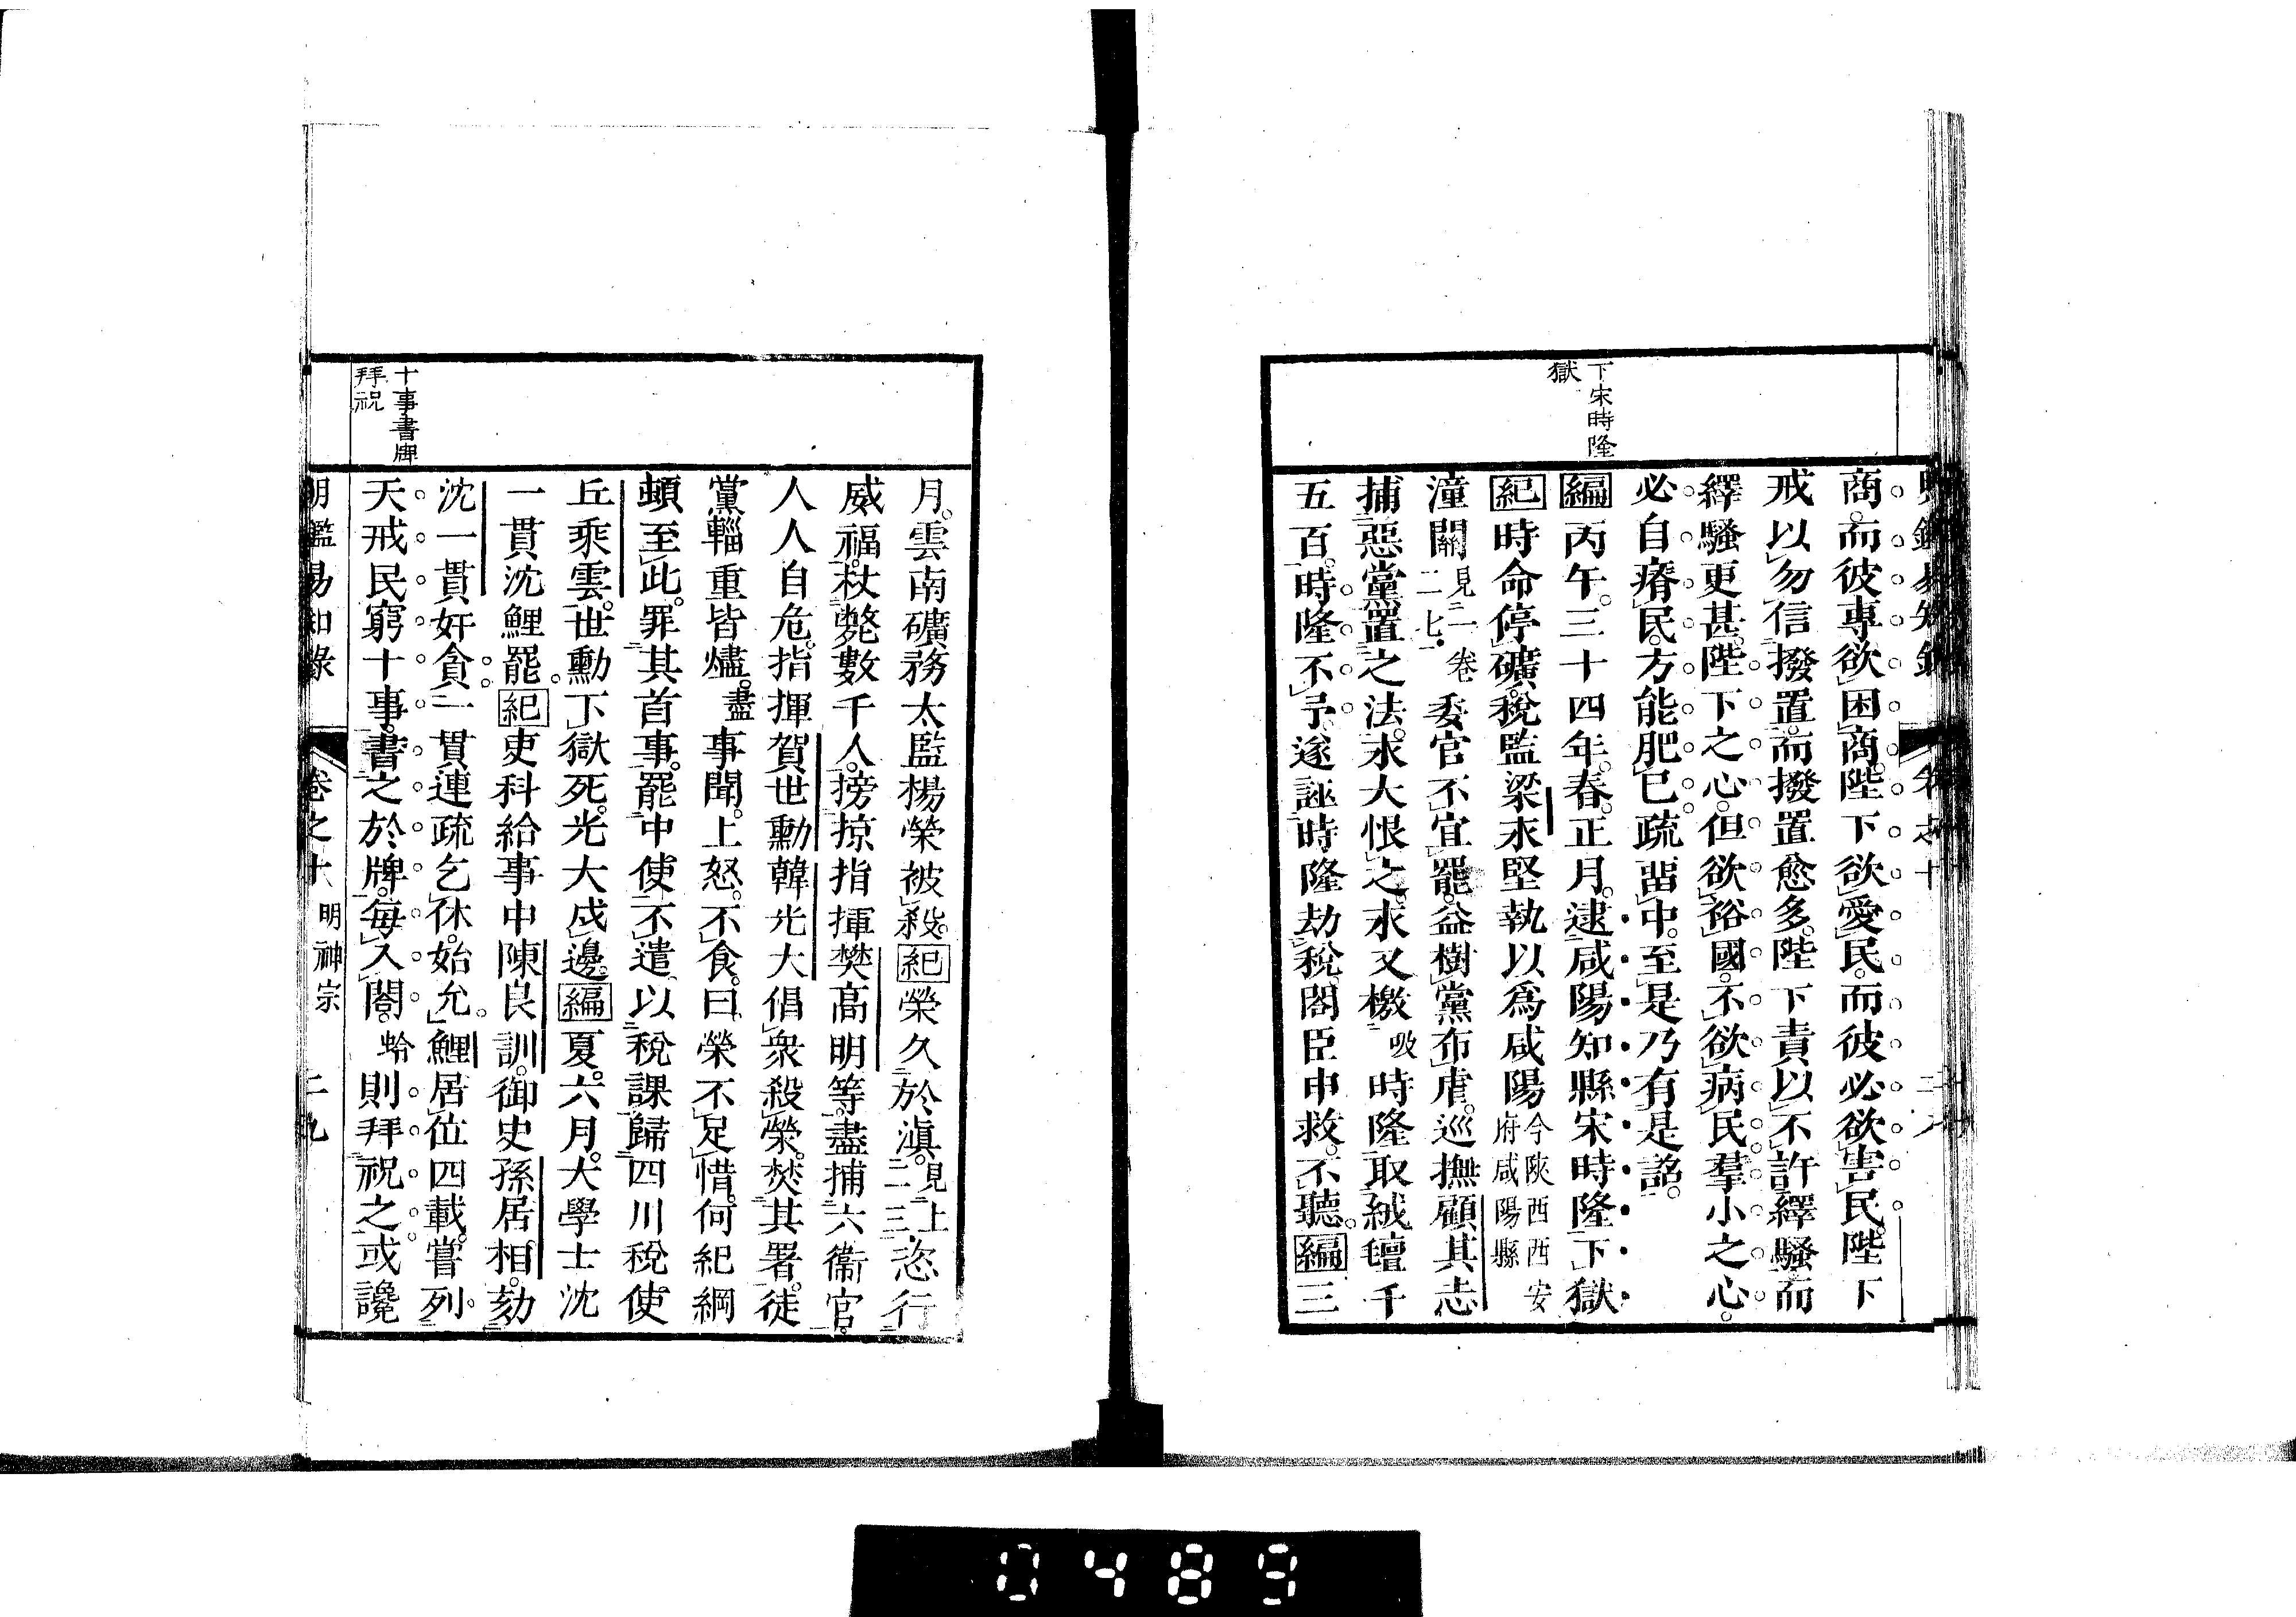 下宋時隆
獄
商。而彼專欲困商。陛下欲愛民。而彼必欲害民。陛下
戒以勿信撥置。而撥置愈多。陛下責以不許繹騷。而
繹騷更甚。陛下之心。但欲裕國。不欲病民。羣小之心。
必自瘠民。方能肥已。疏留中。至是乃有是詔。
編丙午。三十四年。春。正月。逮咸陽知縣宋時隆下獄。
紀時命停礦。稅監梁永堅執以爲咸陽今陝西西安府咸陽縣
潼關見二卷二七委官不宜罷。益樹黨布虐。巡撫顧其志
捕惡黨置之法。永大恨之。永又檄吸時隆取絨氊千
五百。時隆不予。遂誣時隆劫稅。閣臣申救。不聽。編三
月。雲南礦務太監楊榮被殺。紀榮久於滇見上二三恣行
威福。杖斃數千人。搒掠指揮樊高明等。盡捕六衞官。
人人自危。指揮賀世勳韓光大倡衆殺榮。焚其署。徒
黨輜重皆燼。盡事聞。上怒。不食。曰榮不足惜。何紀綱
頓至此。罪其首事。罷中使不遣。以稅課歸四川稅使
丘乘雲。世勳下獄死。光大戍邊。編夏。六月。大學士沈
一貫沈鯉罷。紀吏科給事中陳良訓。御史孫居相。劾
沈一貫奸貪。一貫連疏乞休。始允。鯉居位四載。嘗列
天戒民窮十事。書之於牌。每入閣。蛤則拜祝之。或讒
十事書牌
拜祝
明鑑易知錄
卷之十
明神宗
二九